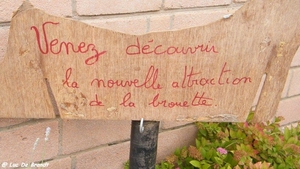 Venez découvrir
la nouvelle attraction
de la brouette
© Luc De Arendt